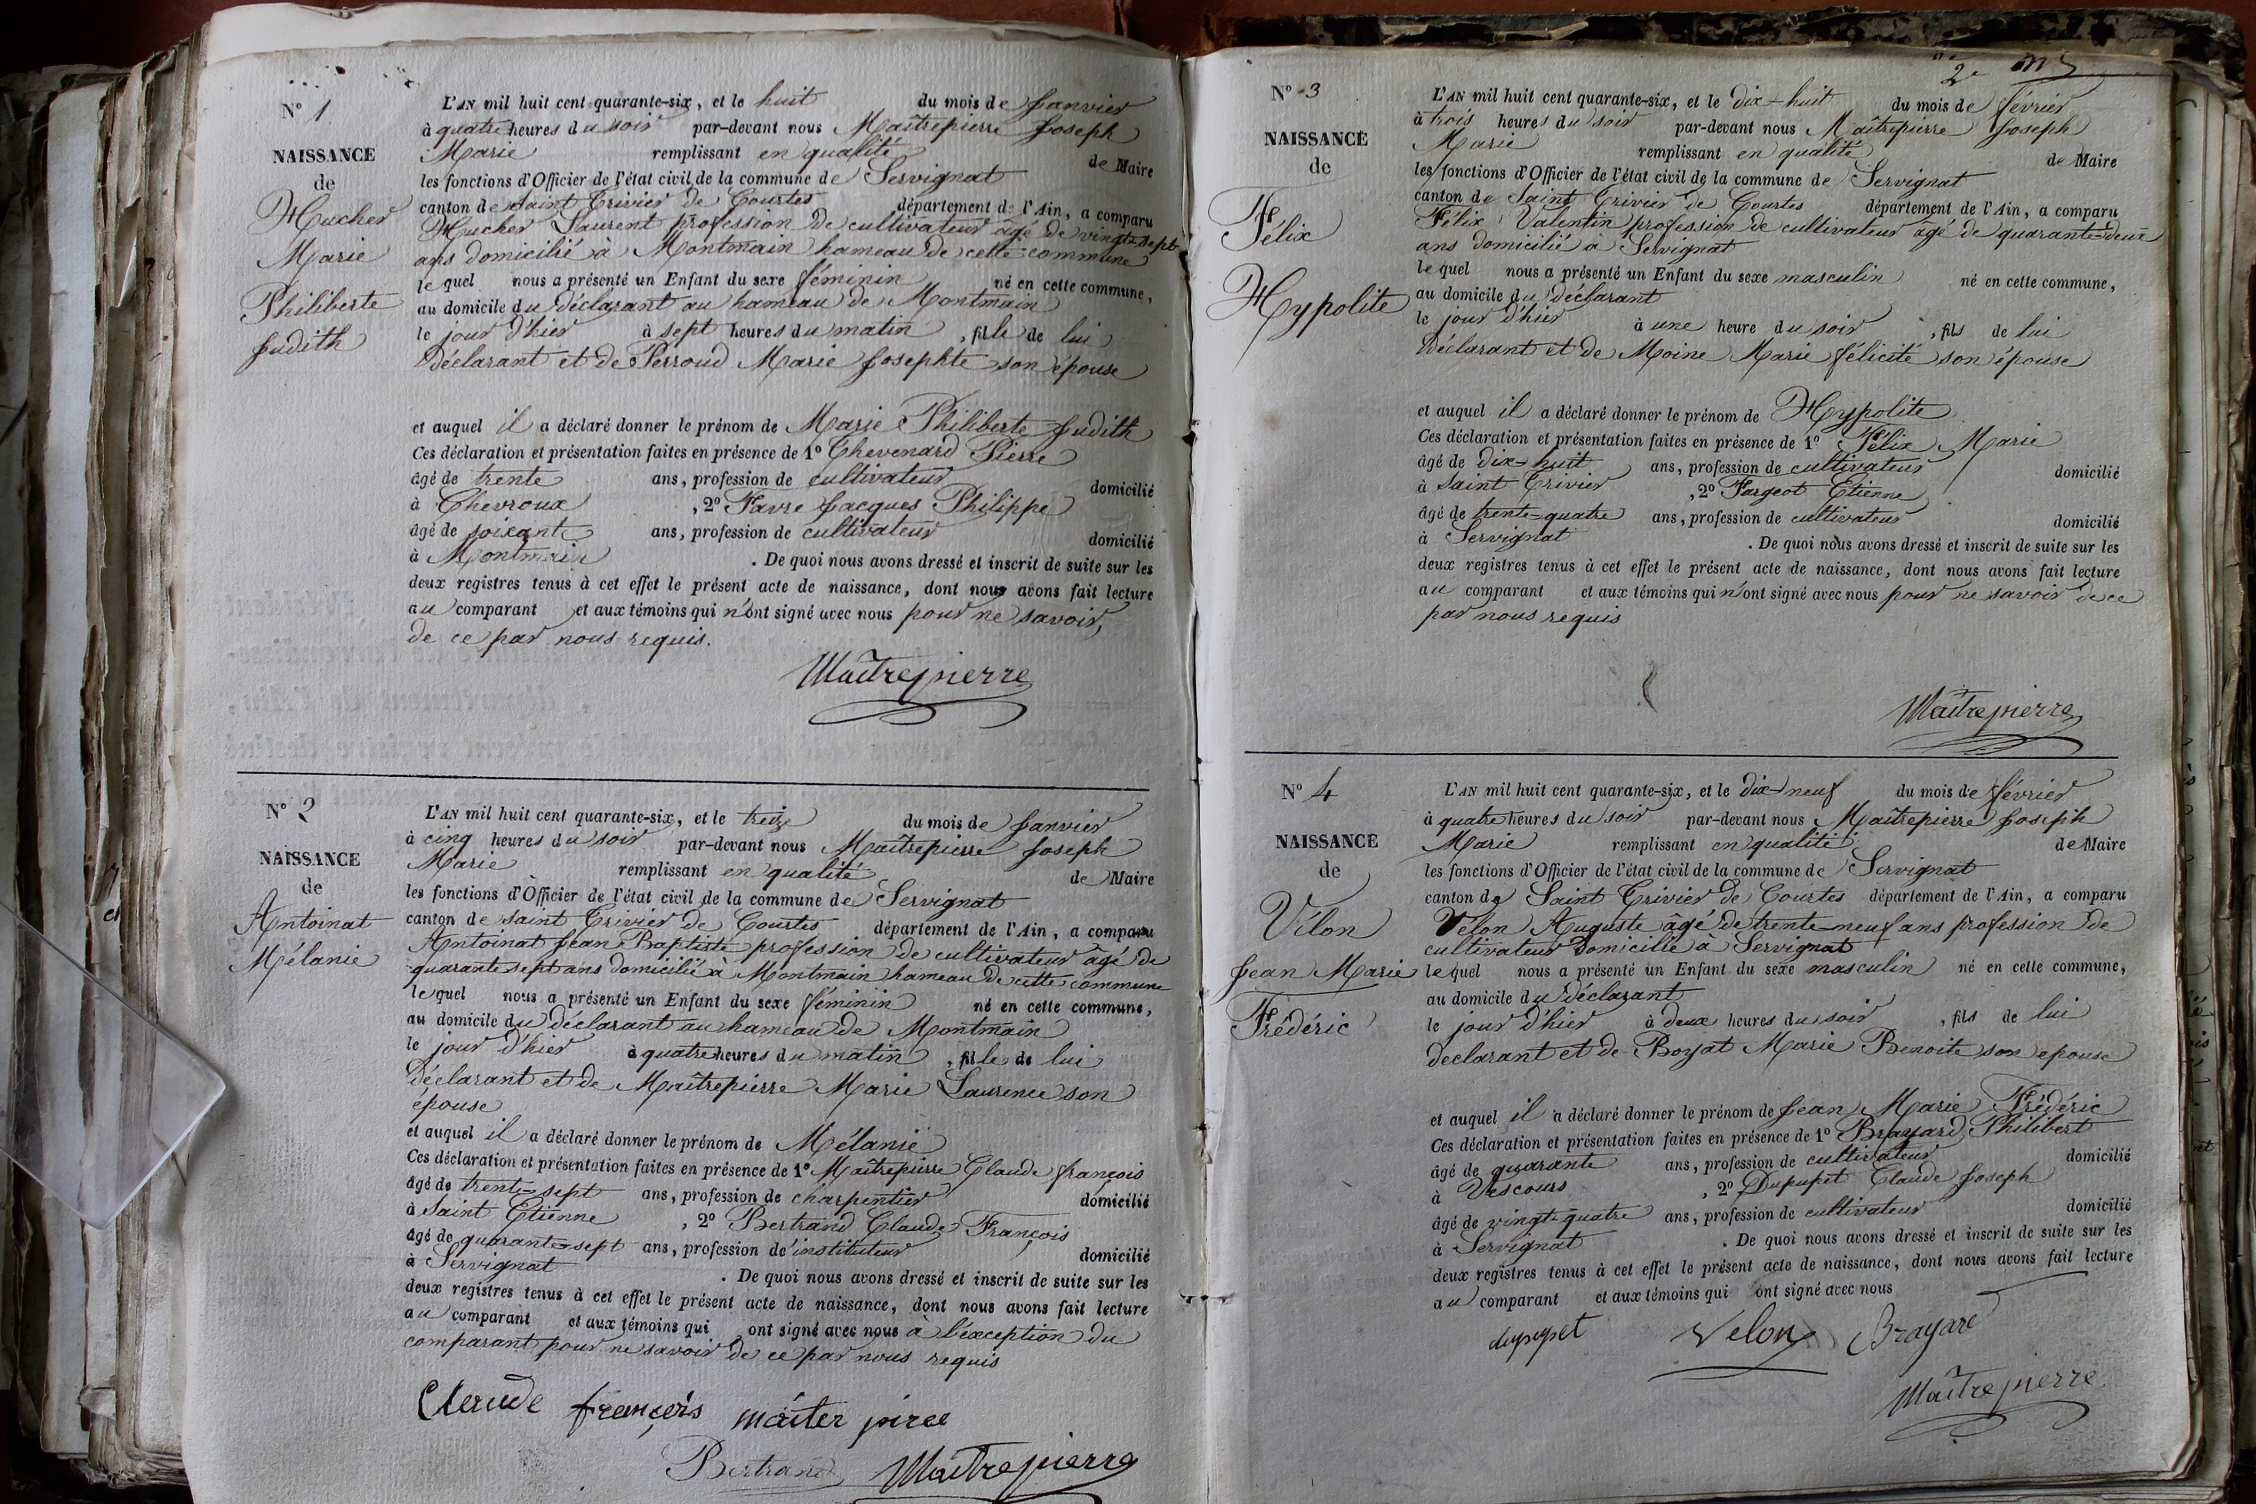 N° 1
NAISSANCE
de
Hucher
Marie
Philiberte
Judith
L'AN mil huit cent quarante-six, et le huit du mois de Janvier
à quatre heures du soir par-devant nous Maîtrepierre Joseph
Marie remplissant en qualité de Maire
les fonctions d'Officier de l'état civil de la commune de Servignat
canton de Saint Trivier de Courtes département de l'Ain, a comparu
Hucher Laurent profession de cultivateur âgé de vingt-sept
ans domicilié à Montmain hameau de cette commune
le quel nous a présenté un Enfant du sexe féminin né en cette commune,
au domicile du déclarant au hameau de Montmain
le jour d'hier à sept heures du matin, fille de lui
déclarant et de Perroud Marie Josephte son épouse
et auquel il a déclaré donner le prénom de Marie Philiberte Judith
Ces déclaration et présentation faites en présence de 1° Chevenard Pierre
âgé de trente ans, profession de cultivateur domicilié
à Chevroux, 2° Favre Jacques Philippe
âgé de soixante ans, profession de cultivateur domicilié
à Montmain. De quoi nous avons dressé et inscrit de suite sur les
deux registres tenus à cet effet le présent acte de naissance, dont nous avons fait lecture
au comparant et aux témoins qui n'ont signé avec nous pour ne savoir,
de ce par nous requis.
Maîtrepierre
N° 2
NAISSANCE
de
Antoinat
Mélanie
L'AN mil huit cent quarante-six, et le treize du mois de Janvier
à cinq heures du soir par-devant nous Maîtrepierre Joseph
Marie remplissant en qualité de Maire
les fonctions d'Officier de l'état civil de la commune de Servignat
canton de Saint Trivier de Courtes département de l'Ain, a comparu
Antoinat Jean Baptiste profession de cultivateur âgé de
quarante sept ans domicilié à Montmain hameau de cette commune
le quel nous a présenté un Enfant du sexe féminin né en cette commune,
au domicile du déclarant au hameau de Montmain
le jour d'hier à quatre heures du matin, fille de lui
déclarant et de Maîtrepierre Marie Laurence son
épouse
et auquel il a déclaré donner le prénom de Mélanie
Ces déclaration et présentation faites en présence de 1° Maîtrepierre Claude françois
âgé de trente-sept ans, profession de charpentier domicilié
à Saint Etienne, 2° Bertrand Claude François
âgé de quarante-sept ans, profession d'instituteur domicilié
à Servignat. De quoi nous avons dressé et inscrit de suite sur les
deux registres tenus à cet effet le présent acte de naissance, dont nous avons fait lecture
au comparant et aux témoins qui ont signé avec nous à l'exception du
comparant pour ne savoir de ce par nous requis
Claude françois maiter pirre
Bertrand Maîtrepierre
2e
N° 3
NAISSANCE
de
Félix
Hypolite
L'AN mil huit cent quarante-six, et le dix-huit du mois de février
à trois heures du soir par-devant nous Maîtrepierre Joseph
Marie remplissant en qualité de Maire
les fonctions d'Officier de l'état civil de la commune de Servignat
canton de Saint Trivier de Courtes département de l'Ain, a comparu
Félix Valentin profession de cultivateur âgé de quarante-deux
ans domicilié à Servignat
le quel nous a présenté un Enfant du sexe masculin né en cette commune,
au domicile du déclarant
le jour d'hier à une heure du soir, fils de lui
déclarant et de Moine Marie félicité son épouse
et auquel il a déclaré donner le prénom de Hypolite
Ces déclaration et présentation faites en présence de 1° Félix Marie
âgé de dix-huit ans, profession de cultivateur domicilié
à Saint Trivier, 2° Fargeot Etienne
âgé de trente-quatre ans, profession de cultivateur domicilié
à Servignat. De quoi nous avons dressé et inscrit de suite sur les
deux registres tenus à cet effet le présent acte de naissance, dont nous avons fait lecture
au comparant et aux témoins qui n'ont signé avec nous pour ne savoir de ce
par nous requis
Maîtrepierre
N° 4
NAISSANCE
de
Vélon
Jean Marie
Frédéric
L'AN mil huit cent quarante-six, et le dix-neuf du mois de février
à quatre heures du soir par-devant nous Maîtrepierre Joseph
Marie remplissant en qualité de Maire
les fonctions d'Officier de l'état civil de la commune de Servignat
canton de Saint Trivier de Courtes département de l'Ain, a comparu
Vélon Auguste âgé de trente-neuf ans profession de
cultivateur domicilié à Servignat
le quel nous a présenté un Enfant du sexe masculin né en cette commune,
au domicile du déclarant
le jour d'hier à deux heures du soir, fils de lui
déclarant et de Boyat Marie Benoite son epouse
et auquel il a déclaré donner le prénom de Jean Marie Frédéric
Ces déclaration et présentation faites en présence de 1° Brayard Philibert
âgé de quarante ans, profession de cultivateur domicilié
à Vescours, 2° Dupupet Claude Joseph
âgé de vingt-quatre ans, profession de cultivateur domicilié
à Servignat. De quoi nous avons dressé et inscrit de suite sur les
deux registres tenus à cet effet le présent acte de naissance, dont nous avons fait lecture
au comparant et aux témoins qui ont signé avec nous
dupupet Velon Brayard
Maîtrepierre